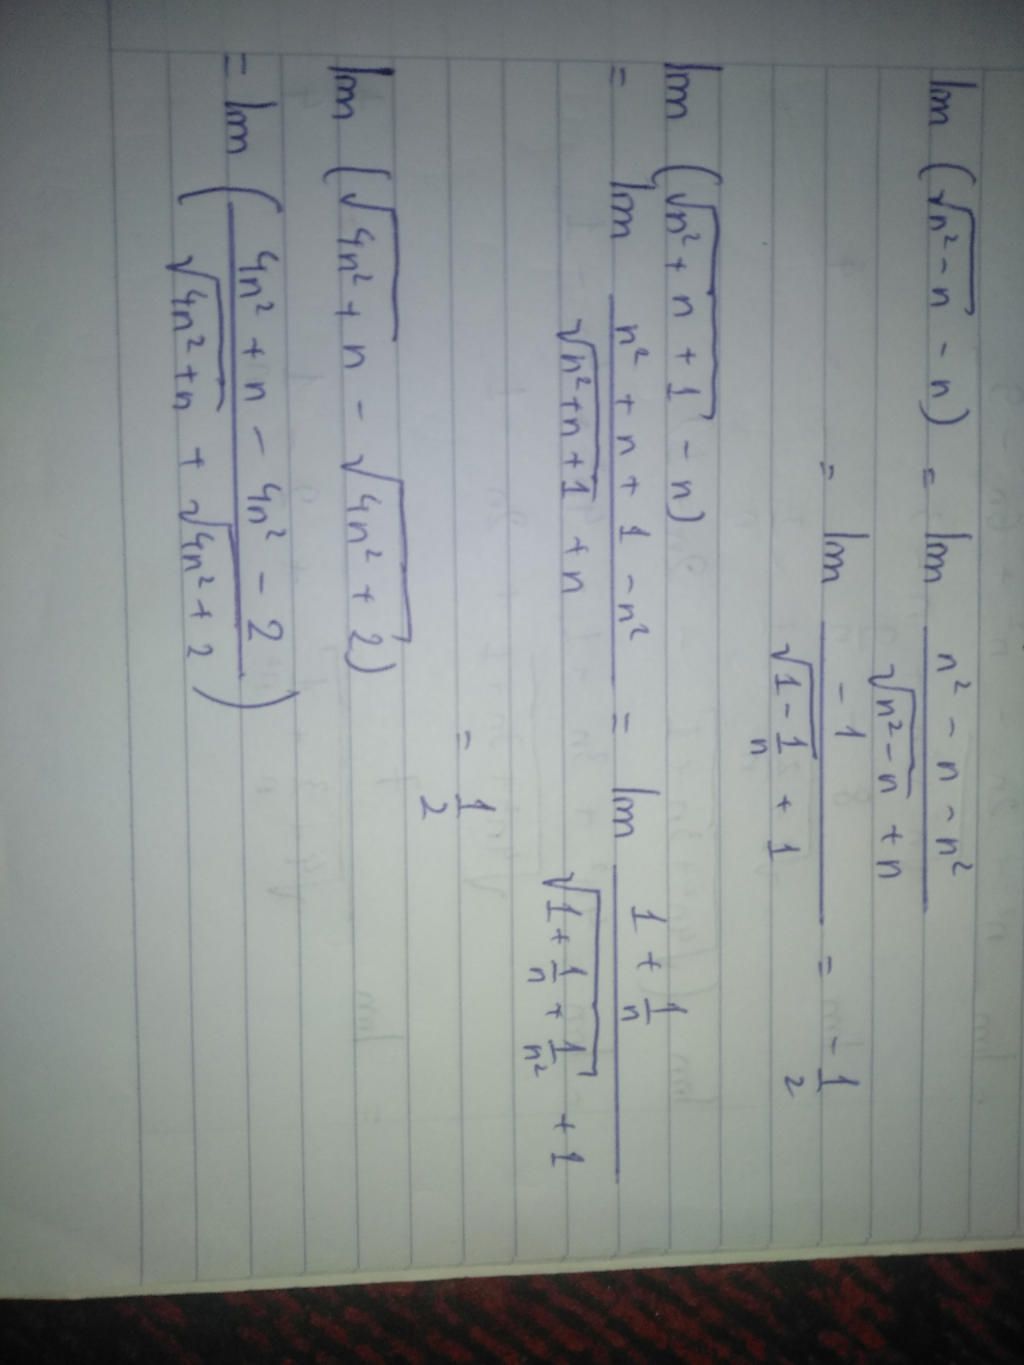 lim (√n² - n - n) = lim n² - n - n² / √n² - n + n
= lim - 1 / √1 - 1/n + 1 = - 1/2
lim (√n² + n + 1 - n)
= lim n² + n + 1 - n² / √n² + n + 1 + n = lim 1 + 1/n / √1 + 1/n + 1/n² + 1
= 1/2
lim (√4n² + n - √4n² + 2)
= lim (4n² + n - 4n² - 2 / √4n² + n + √4n² + 2)